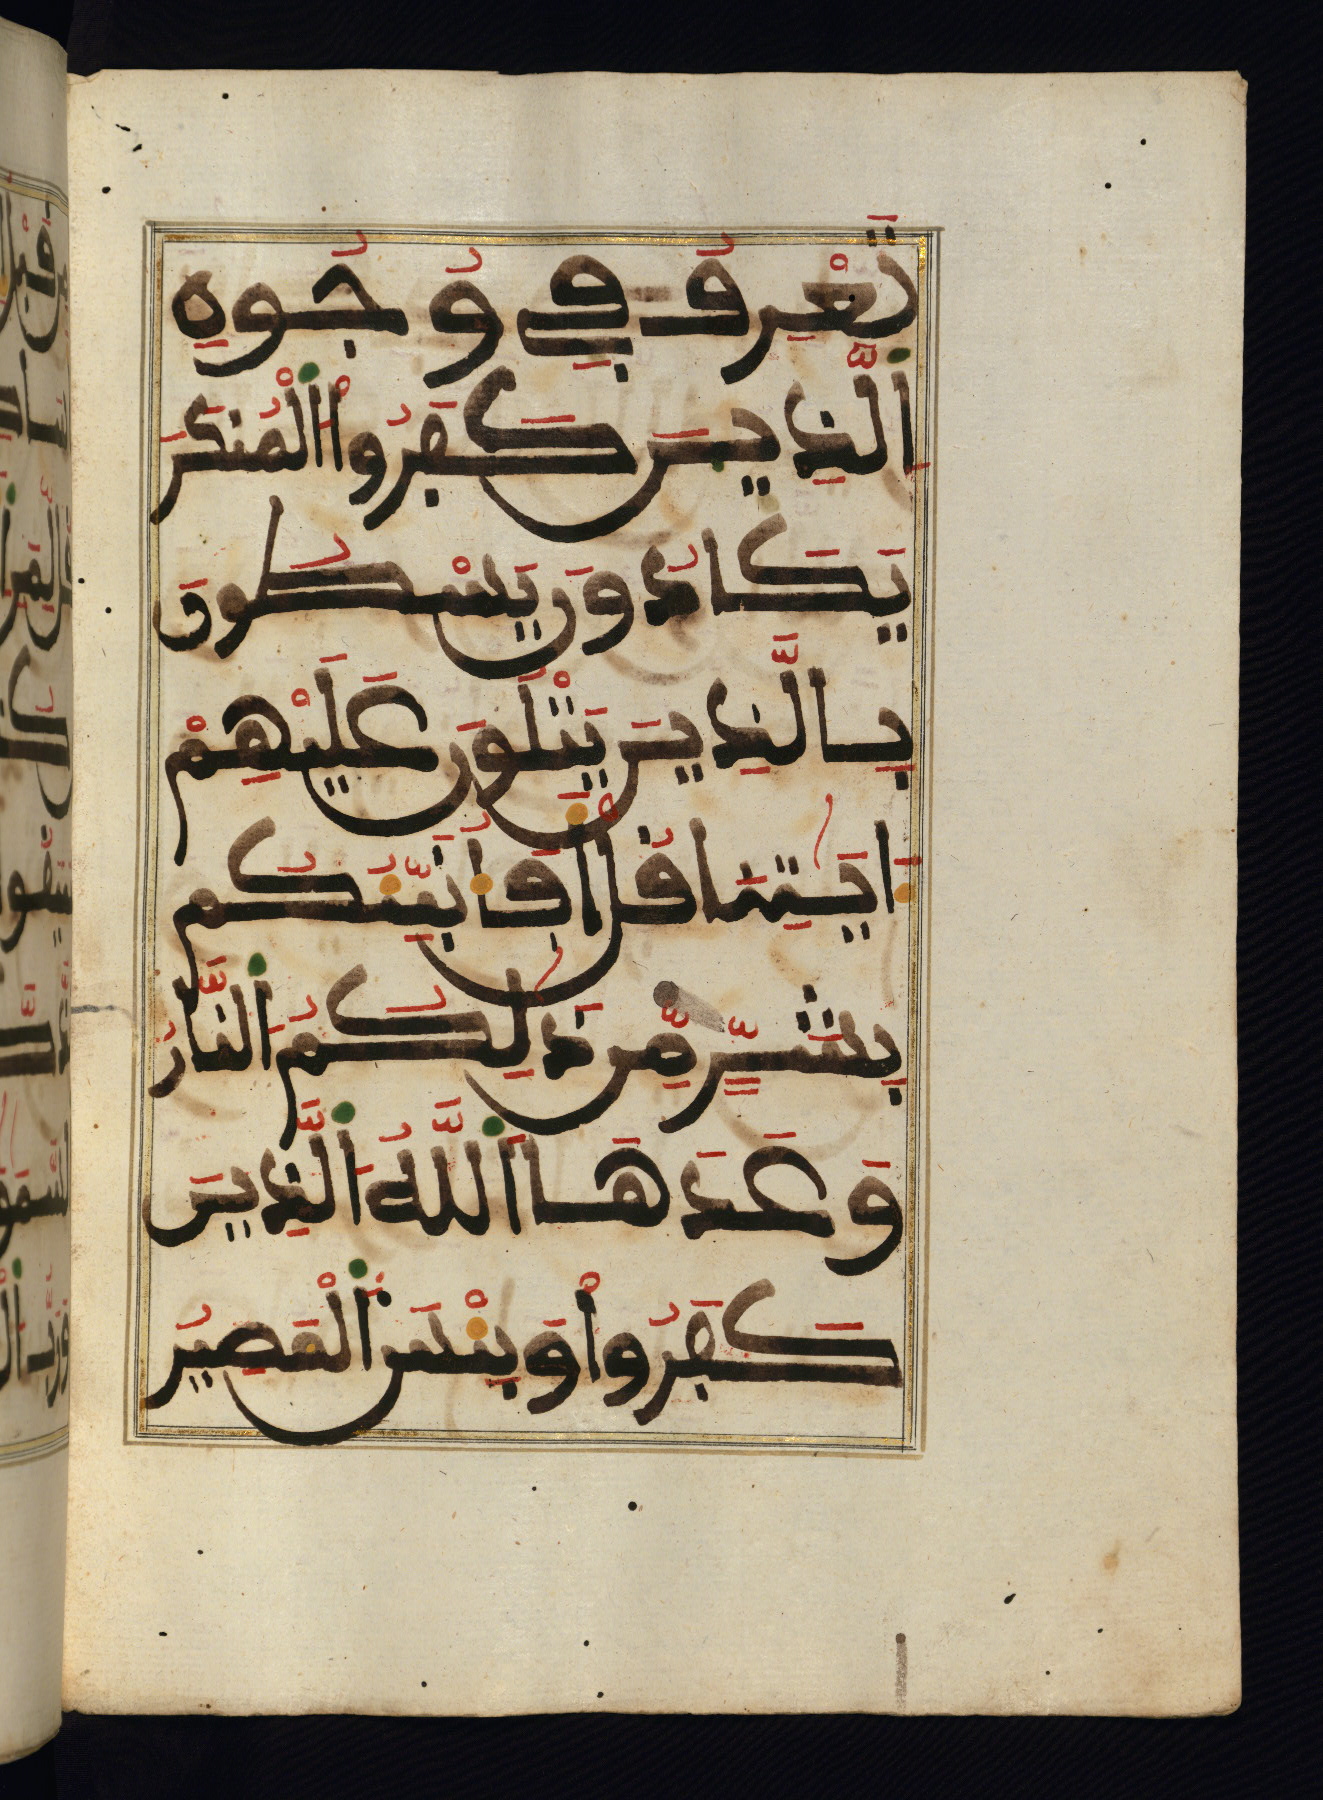 تَعْرِفُ فِي وُجُوهِ
اَ۬لَّذِينَ كَفَرُواْ اُ۬لْمُنكَرَ
يَكَادُونَ يَسْطُونَ
بِالَّذِينَ يَتْلُونَ عَلَيْهِمْ
ءَايَٰتِنَا قُلْ أَفَأُنَبِّئُكُم
بِشَرٍّ مِّن ذَٰلِكُمُ اُ۬لنَّارُ
وَعَدَهَا اَ۬للَّهُ اُ۬لَّذِينَ
كَفَرُواْ وَبِئْسَ اَ۬لْمَصِيرُ